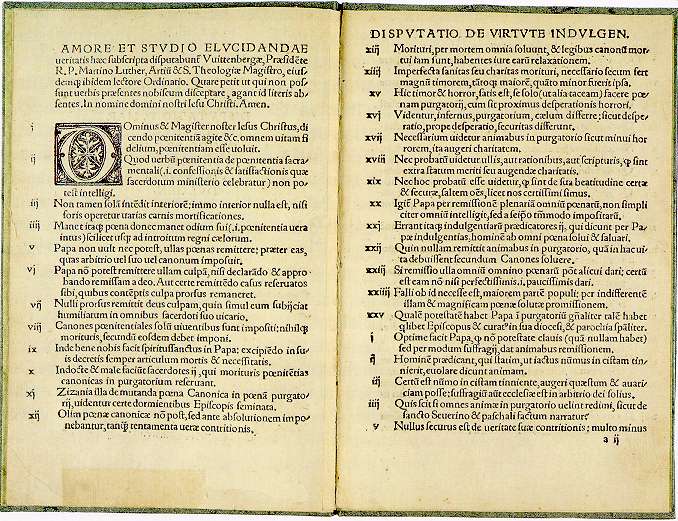 AMORE ET STVDIO ELVCIDANDAE
ueritatis hæc subscripta disputabunt̃ Vuittenbergæ, Præsidẽte
R. P. Martino Luther, Artiũ & S. Theologiæ Magistro, eius-
dem ibidem lectore Ordinatio. Quare petit ut qui non pos-
sunt uerbis præsentes nobiscum disceptare, agant id literis ab-
sentes. In nomine domini nostri Iesu Christi. Amen.
i DOminus & Magister noster Iesus Christus, di-
cendo pœnitentiã agite &c. omnem uitam fi-
delium, pœnitentiam esse uoluit.
ij Quod uerbũ pœnitentia de pœnitentia sacra-
mentali (.i. confessionis & satisfactionis quæ
sacerdotum ministerio celebratur) non po-
test intelligi.
iij Non tamen solã intẽdit interiorẽ: immo interior nulla est, nisi
foris operetur uarias carnis mortificationes.
iiij Manet itaqꝫ pœna donec manet odium sui (.i. pœnitentia uera
intus) scilicet usqꝫ ad introitum regni cælorum.
v Papa non uult nec potest, ullas pœnas remittere: præter eas,
quas arbitrio uel suo uel canonum imposuit.
vj Papa nõ potest remittere ullam culpã, nisi declarãdo & appro-
bando remissam a deo. Aut certe remittẽdo casus reseruatos
sibi, quibus contẽptis culpa prorsus remaneret.
vij Nulli prorsus remittit deus culpam, quin simul eum subijciat
humiliatum in omnibus sacerdoti suo uicario.
viij Canones pœnitentiales solũ uiuentibus sunt impositi: nihilqꝫ
morituris, secundũ eosdem debet imponi.
ix Inde bene nobis facit spiritussanctus in Papa: excipiẽdo in su-
is decretis semper articulum mortis & necessitatis.
x Indocte & male faciũt sacerdotes ij, qui morituris pœnitẽtias
canonicas in purgatorium reseruant.
xj Zizania illa de mutanda pœna Canonica in pœnã purgato-
rij, uidentur certe dormientibus Episcopis seminata.
xij Olim pœnæ canonicæ nõ post, sed ante absolutionem impo-
nebantur, tanqꝫ tentamenta ueræ contritionis.
DISPVTATIO DE VIRTVTE INDVLGEN.
xiij Morituri, per mortem omnia soluunt, & legibus canonũ mor-
tui iam sunt, habentes iure earũ relaxationem.
xiiij Imperfecta sanitas seu charitas morituri, necessario secum fert
magnũ timorem, tãtoqꝫ maiorẽ, quãto minor fuerit ipsa.
xv Hic timor & horror, satis est, se solo (ut alia taceam) facere pœ-
nam purgatorij, cum sit proximus desperationis horrori.
xvj Videntur, infernus, purgatorium, cælum differre: sicut despe-
ratio, prope desperatio, securitas differunt.
xvij Necessarium uidetur animabus in purgatorio sicut minui hor-
rorem, ita augeri charitatem.
xviij Nec probatũ uidetur ullis, aut rationibus, aut scripturis, ꝙ sint
extra statum meriti seu augendæ charitatis.
xix Nec hoc probatũ esse uidetur, ꝙ sint de sua beatitudine certæ
& securæ, saltem oẽs, licet nos certissimi simus.
xx Igit̃ Papa per remissionẽ plenariã omniũ pœnarũ, non simpli-
citer omniũ intelligit, sed a seipo tm̃modo impositarũ.
xxj Errant itaqꝫ indulgentiarũ prædicatores ij, qui dicunt per Pa-
pæ indulgentias, hominẽ ab omni pœna solui & saluari.
xxij Quin nullam remittit animabus in purgatorio, quã in hac ui-
ta debuissent secundum Canones soluere.
xxiij Si remissio ulla omniũ omnino pœnarũ põt alicui dari: certũ
est eam nõ nisi perfectissimis .i. paucissimis dari.
xxiiij Falli ob id necesse est, maiorem partẽ populi: per indifferentẽ
illam & magnificam pœnæ solutæ promissionem.
xxv Qualẽ potestatẽ habet Papa ĩ purgatoriũ gñaliter talẽ habet
qlibet Episcopus & curat⁹ in sua diocesi, & parochia spãliter.
i Optime facit Papa, ꝙ nõ potestate clauis (quã nullam habet)
sed per modum suffragij, dat animabus remissionem.
ij Hominẽ prædicant, qui statim, ut iactus nũmus in cistam tin-
nierit, euolare dicunt animam.
iij Certũ est nũmo in cistam tinniente, augeri quæstum & auari-
ciam posse: suffragiũ aũt ecclesiæ est in arbitrio dei solius.
iiij Quis scit si omnes animæ in purgatorio uelint redimi, sicut de
sancto Seuerino & paschali factum narratur
v Nullus securus est de ueritate suæ contritionis: multo minus
a ij